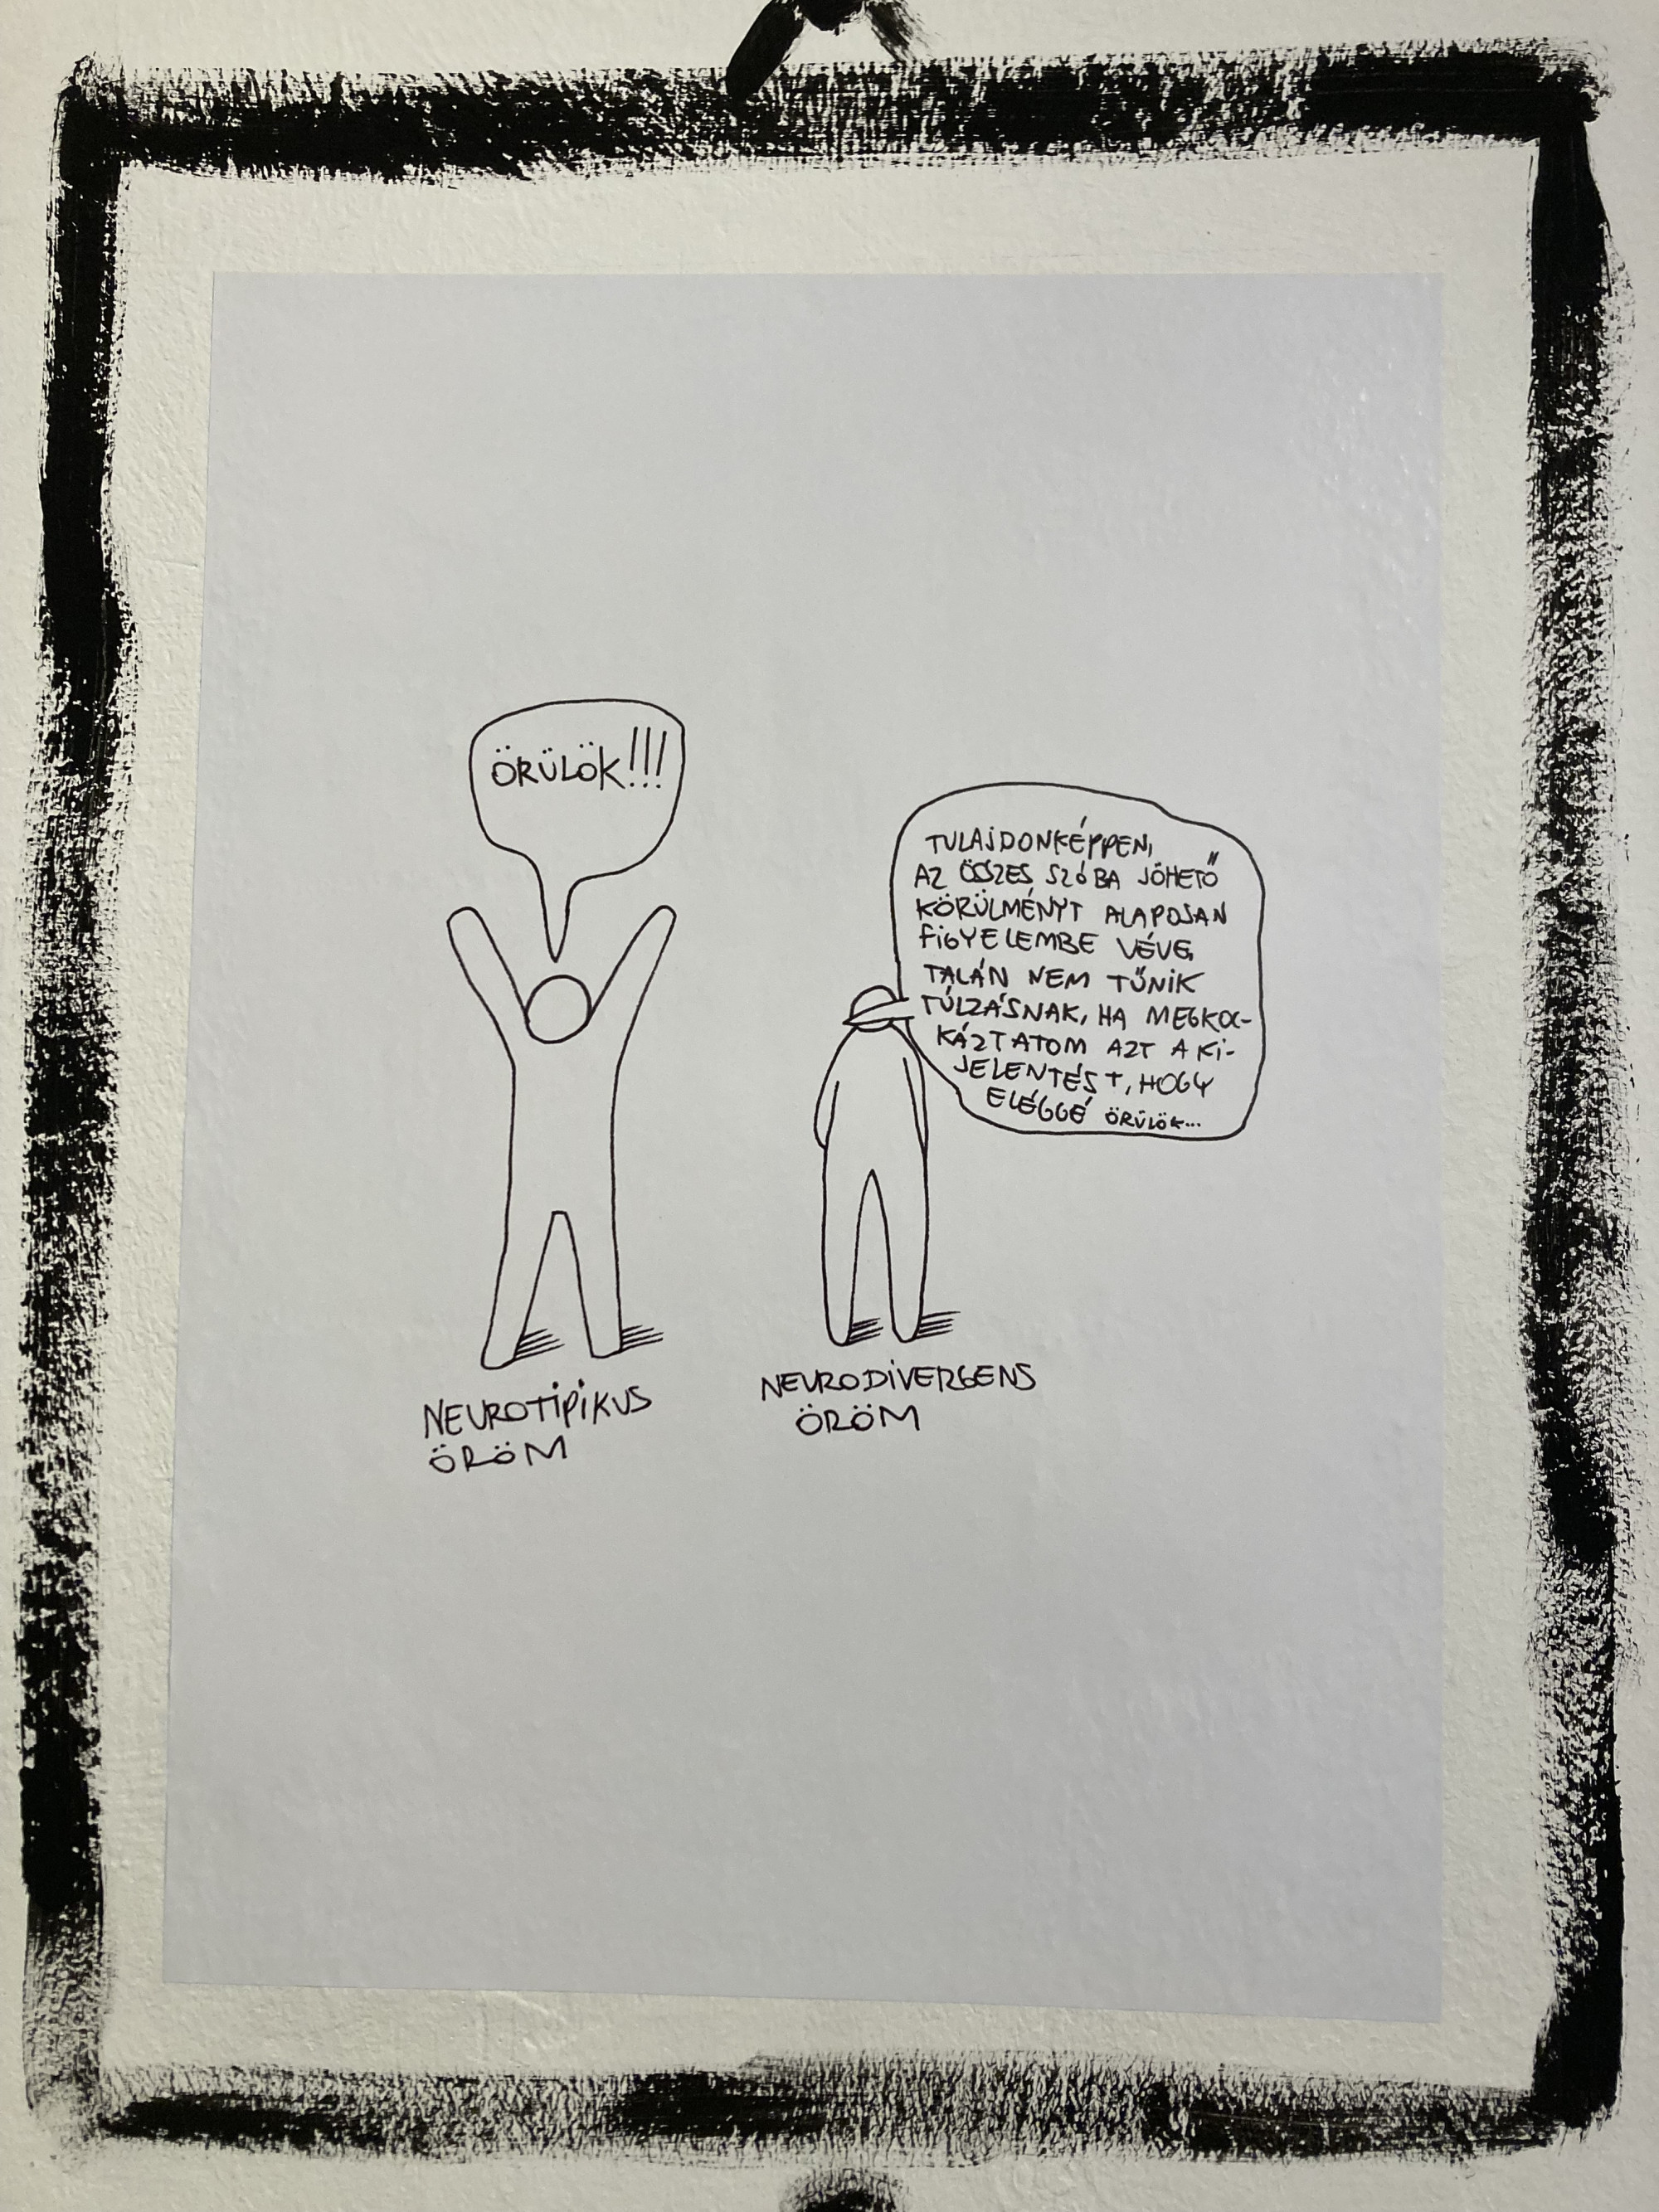 ÖRÜLÖK!!!
TULAJDONKÉPPEN,
AZ ÖSSZES SZÓBA JÖHETŐ
KÖRÜLMÉNYT ALAPOSAN
FIGYELEMBE VÉVE,
TALÁN NEM TŰNIK
TÚLZÁSNAK, HA MEGKOC-
KÁZTATOM AZT A KI-
JELENTÉST, HOGY
ELÉGGÉ ÖRÜLÖK...
NEUROTIPIKUS
ÖRÖM
NEURODIVERGENS
ÖRÖM